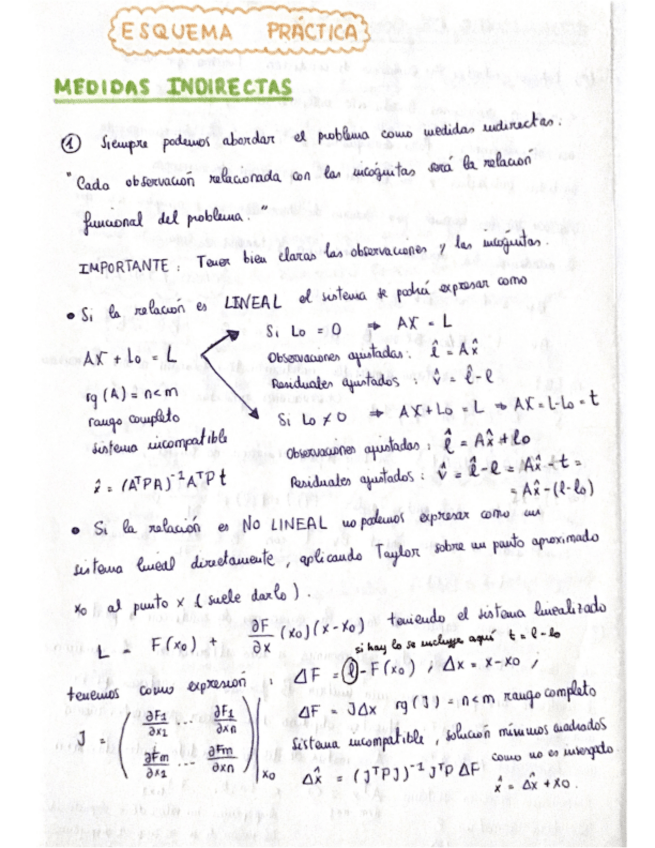 ESQUEMA PRÁCTICA
MEDIDAS INDIRECTAS
① Siempre podemos abordar el problema como medidas indirectas.
"Cada observación relacionada con las incógnitas será la relación
funcional del problema."
IMPORTANTE: Tener bien claras las observaciones y las incógnitas.
• Si la relación es LINEAL el sistema se podrá expresar como
AX + Lo = L
rg(A) = n<m
rango completo
sistema incompatible
x̂ = (AᵀPA)⁻¹AᵀPt
Si Lo = 0 ⇒ AX = L
Observaciones ajustadas: l̂ = Ax̂
Residuales ajustados: v̂ = l̂ - l
Si Lo ≠ 0 ⇒ AX + Lo = L ⇒ AX = L-Lo = t
Observaciones ajustadas: l̂ = Ax̂ + lo
Residuales ajustados: v̂ = l̂ - l = Ax̂ - t =
= Ax̂ - (l-lo)
• Si la relación es NO LINEAL no podemos expresar como un
sistema lineal directamente, aplicando Taylor sobre un punto aproximado
xo al punto x (suele darlo).
L = F(xo) + ∂F/∂x (xo)(x-xo) teniendo el sistema linealizado
si hay lo se incluye aquí t = l-lo
tenemos como expresión: ΔF = l - F(xo) ; Δx = x-xo ;
J = (∂F1/∂x1 ... ∂F1/∂xn
∂Fm/∂x1 ... ∂Fm/∂xn)|xo
ΔF = JΔx rg(J) = n<m rango completo
Sistema incompatible, solución mínimos cuadrados
Δx̂ = (JᵀPJ)⁻¹JᵀPΔF
como no es
x̂ = Δx̂ + xo.